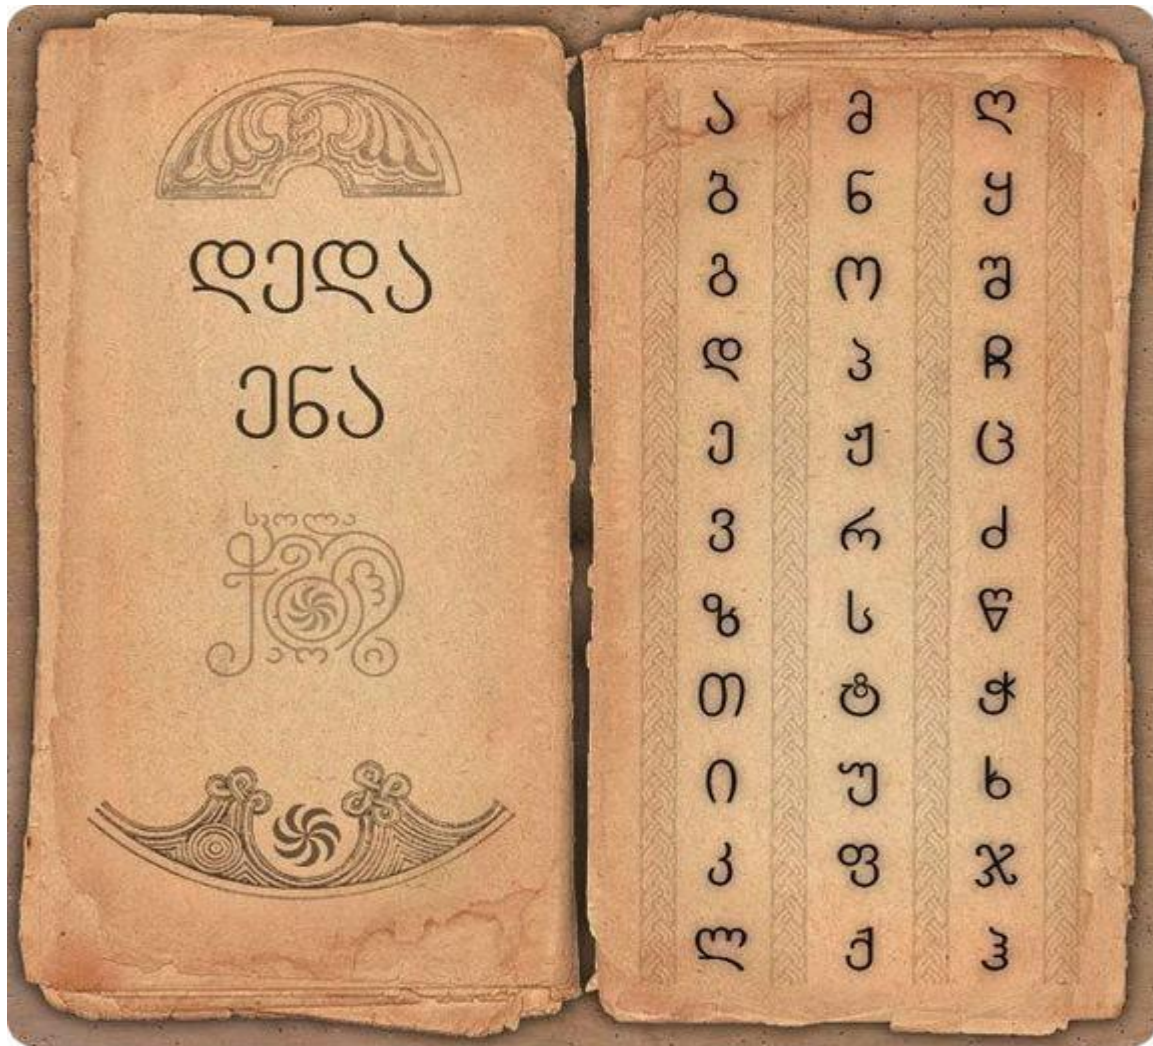 დედა
ენა
სკოლა
ა
ბ
გ
დ
ე
ვ
ზ
თ
ი
კ
ლ
მ
ნ
ო
პ
ჟ
რ
ს
ტ
უ
ფ
ქ
ღ
ყ
შ
ჩ
ც
ძ
წ
ჭ
ხ
ჯ
ჰ